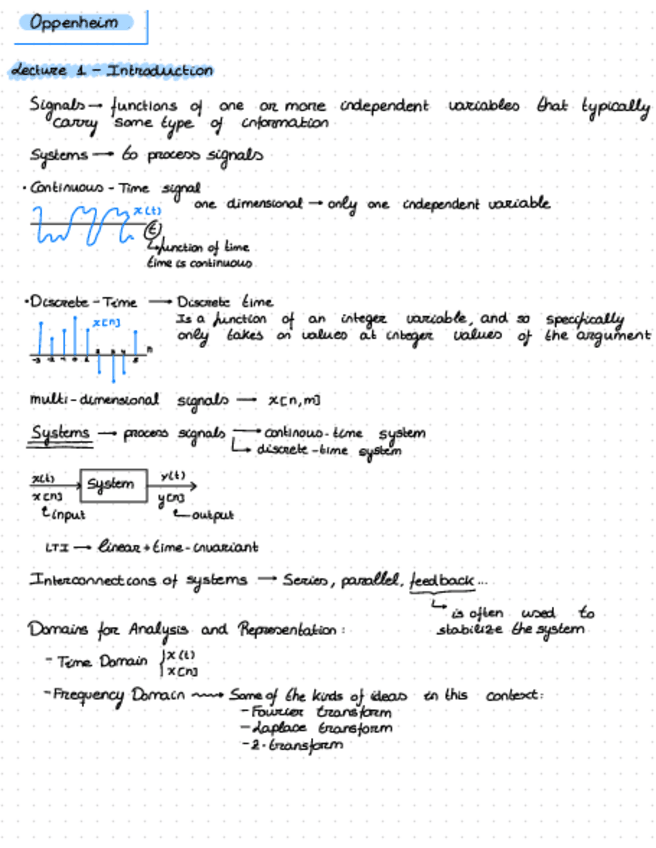 Oppenheim
Lecture 1 - Introduction
Signals → functions of one or more independent variables that typically
carry some type of information
Systems → to process signals
· Continuous - Time signal
one dimensional → only one independent variable
x(t)
(t)
↳ function of time
time is continuous
· Discrete - Time → Discrete time
Is a function of an integer variable, and so specifically
x[n]
only takes on values at integer values of the argument
n
multi-dimensional signals → x[n,m]
Systems → process signals → continous-time system
↳ discrete-time system
x(t) System y(t)
x[n] y[n]
input output
LTI → linear + time-invariant
Interconnections of systems → Series, parallel, feedback...
↳ is often used to
stabilize the system
Domains for Analysis and Representation:
- Time Domain { x(t)
x[n]
- Frequency Domain → Some of the kinds of ideas in this context:
- Fourier transform
- Laplace transform
- z-transform